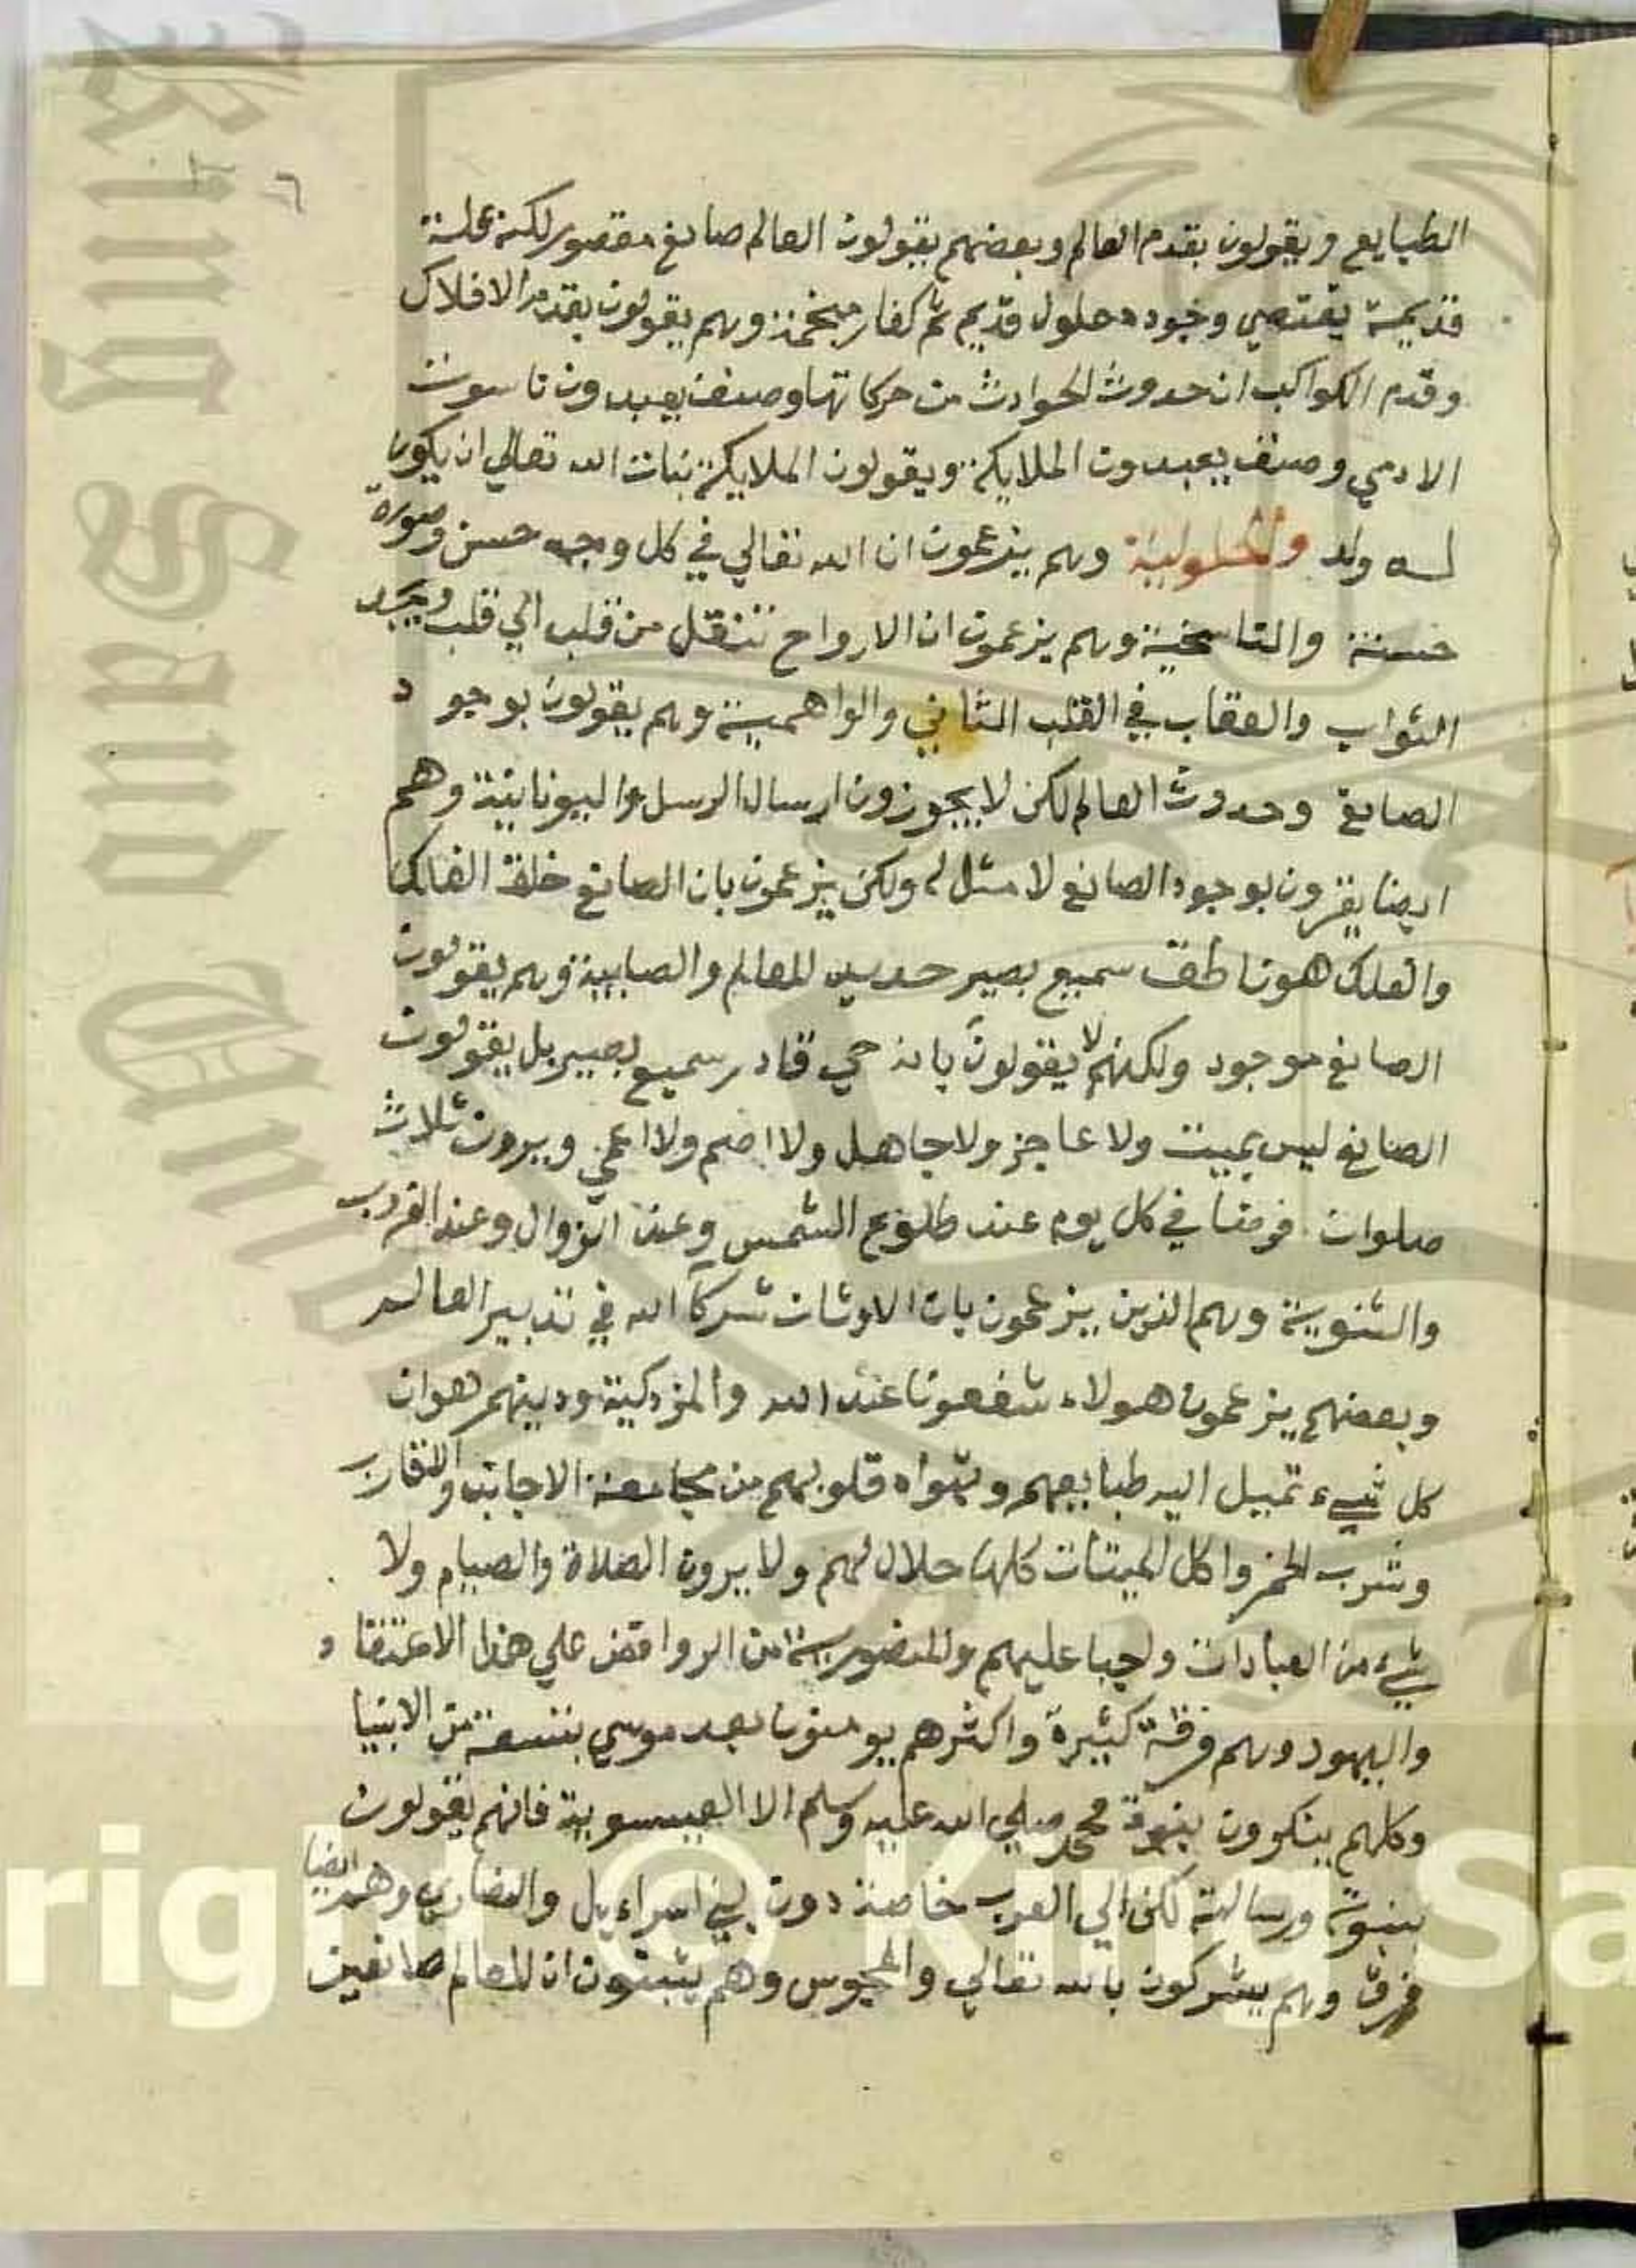 ٦
الطبايع ويقولون بقدم العالم وبعضهم يقولون العالم صانع مقصور لكنه علة
قديمة يقتضي وجوده معلول قديم ثم كفار وهم يقولون بقدم الافلاك
وقدم الكواكب ان حدوث الحوادث من حركاتها وصنف يعبدون ناسوت
الادمي وصنف يعبدون الملايكة ويقولون الملايكة بنات الله تعالي ان يكون
له ولد والحلولية وهم يزعمون ان الله تعالي في كل وجه حسن وصورة
حسنة والتناسخية وهم يزعمون ان الارواح تنتقل من قلب الي قلب
الثواب والعقاب في القلب الثاني والواهمية وهم يقولون بوجود
الصانع وحدوث العالم لكن لا يجوزون ارسال الرسل واليونانية وهم
ايضا يقرون بوجود الصانع لا مثل له ولكن يزعمون بان الصانع خلق الفلك
والفلك هو ناطق سميع بصير للعالم والصابية وهم يقولون
الصانع موجود ولكنهم لا يقولون بانه حي قادر سميع بصير بل يقولون
الصانع ليس بميت ولا عاجز ولا جاهل ولا اصم ولا اعمي ويرون ثلاث
صلوات فرضا في كل يوم عند طلوع الشمس وعند الزوال وعند الغروب
والثنوية وهم الذين يزعمون بان الاوثان شركآ الله في تدبير العالم
وبعضهم يزعمون هولاء شفعونا عند الله والمزدكية ودينهم هو ان
كل شيء تميل اليه طبايعهم وتهواه قلوبهم من مجامعة الاجانب والاقارب
وشرب الخمر واكل الميتات كلها حلال لهم ولا يرون الصلاة والصيام ولا
شيء من العبادات واجبا عليهم والمنصورية من الروافض علي هذا الاعتقاد
واليهود وهم فرقة كثيرة واكثرهم يومنون بعد موسي بتسعة من الانبيا
وكلهم ينكرون بنبوة محمد صلي الله عليه وسلم الا العيسوية فانهم يقولون
بنبوته ورسالته لكن الي العرب خاصة دون بني اسراءيل والنصاري وهم ايضا
فرق وهم يشركون بالله تعالي والمجوس وهم يثبتون ان للعالم صانعين
King Saud
right © King Sa
1957